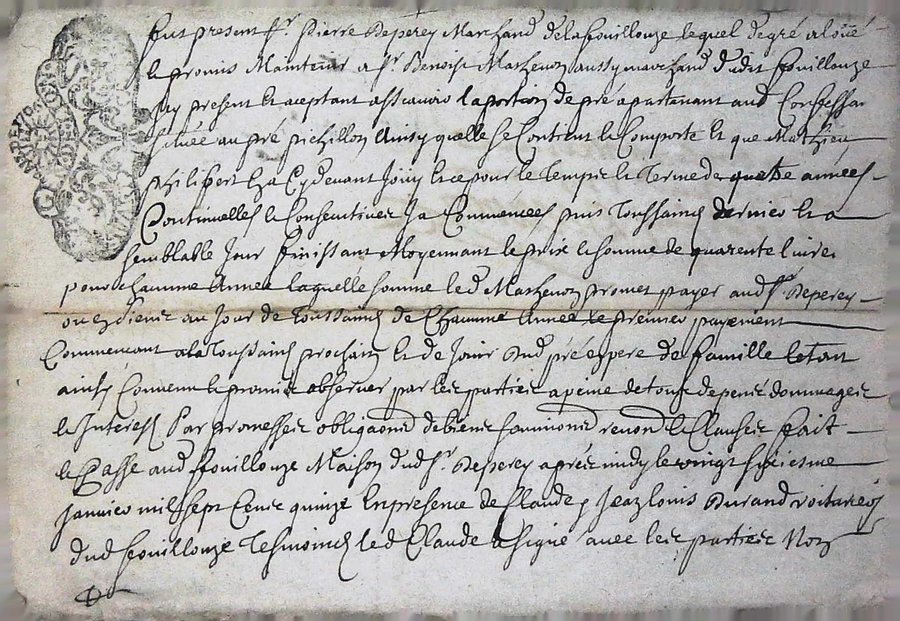 Fut present Sr. Pierre Deperey Marchand de la fouillouze lequel de gré a loüé
et promis Maintenir a Sr Benoist Mathevon aussy marchand dudit fouillouze
icy present et aceptant assavoir la portion de pré apartenant aud Confessan
située au pré pichillon Ainsy quelle se Contient et Comporte et que Mathieu
philipert la Cydevant Jouy et ce pour le Temps et Terme de quatre années
Continuelles et Consecutives Ja Commencés puis Toussainct dernier et a
semblable Jour finissant Moyennant le prix et somme de quarente livres
pour chacunne Année laquelle somme led Mathevon promet payer aud Sr Deperey
ou es siens au Jour de Toussainct de Chacunne Année le premier payement
Commencant a la Toussainct prochain et de Jouir dud pré en pere de famille le tout
ainsy Convenu et promis observer par les parties a peine de tous depens dommages
et Interests Par promesses obligaons de biens soumions renons et Clauses fait
et Passé aud fouillouze Maison dud Sr. Deperey aprés midy le vingt sixiesme
janvier mil sept Cens quinze En presence de Claude et Jean Louis Durand voituriers
dud fouillouze Tesmoins led Claude a signé avec les parties Non